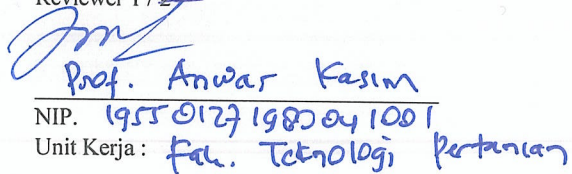 Reviewer 1 / 2
Prof. Anwar Kasim
NIP. 19550127 198004 1001
Unit Kerja : Fak. Teknologi Pertanian